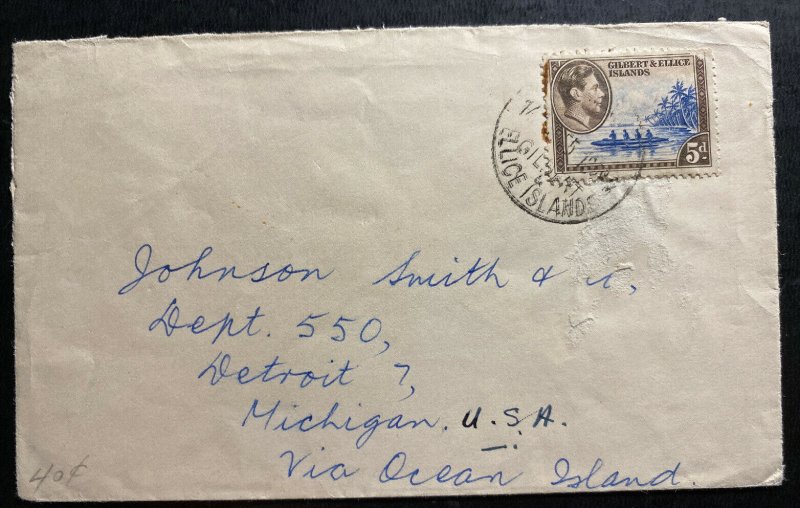 GILBERT & ELLICE
ISLANDS
5d
GILBERT &
ELLICE ISLANDS
Johnson Smith & Co,
Dept. 550,
Detroit 7,
Michigan. U.S.A.
Via Ocean Island.
40¢